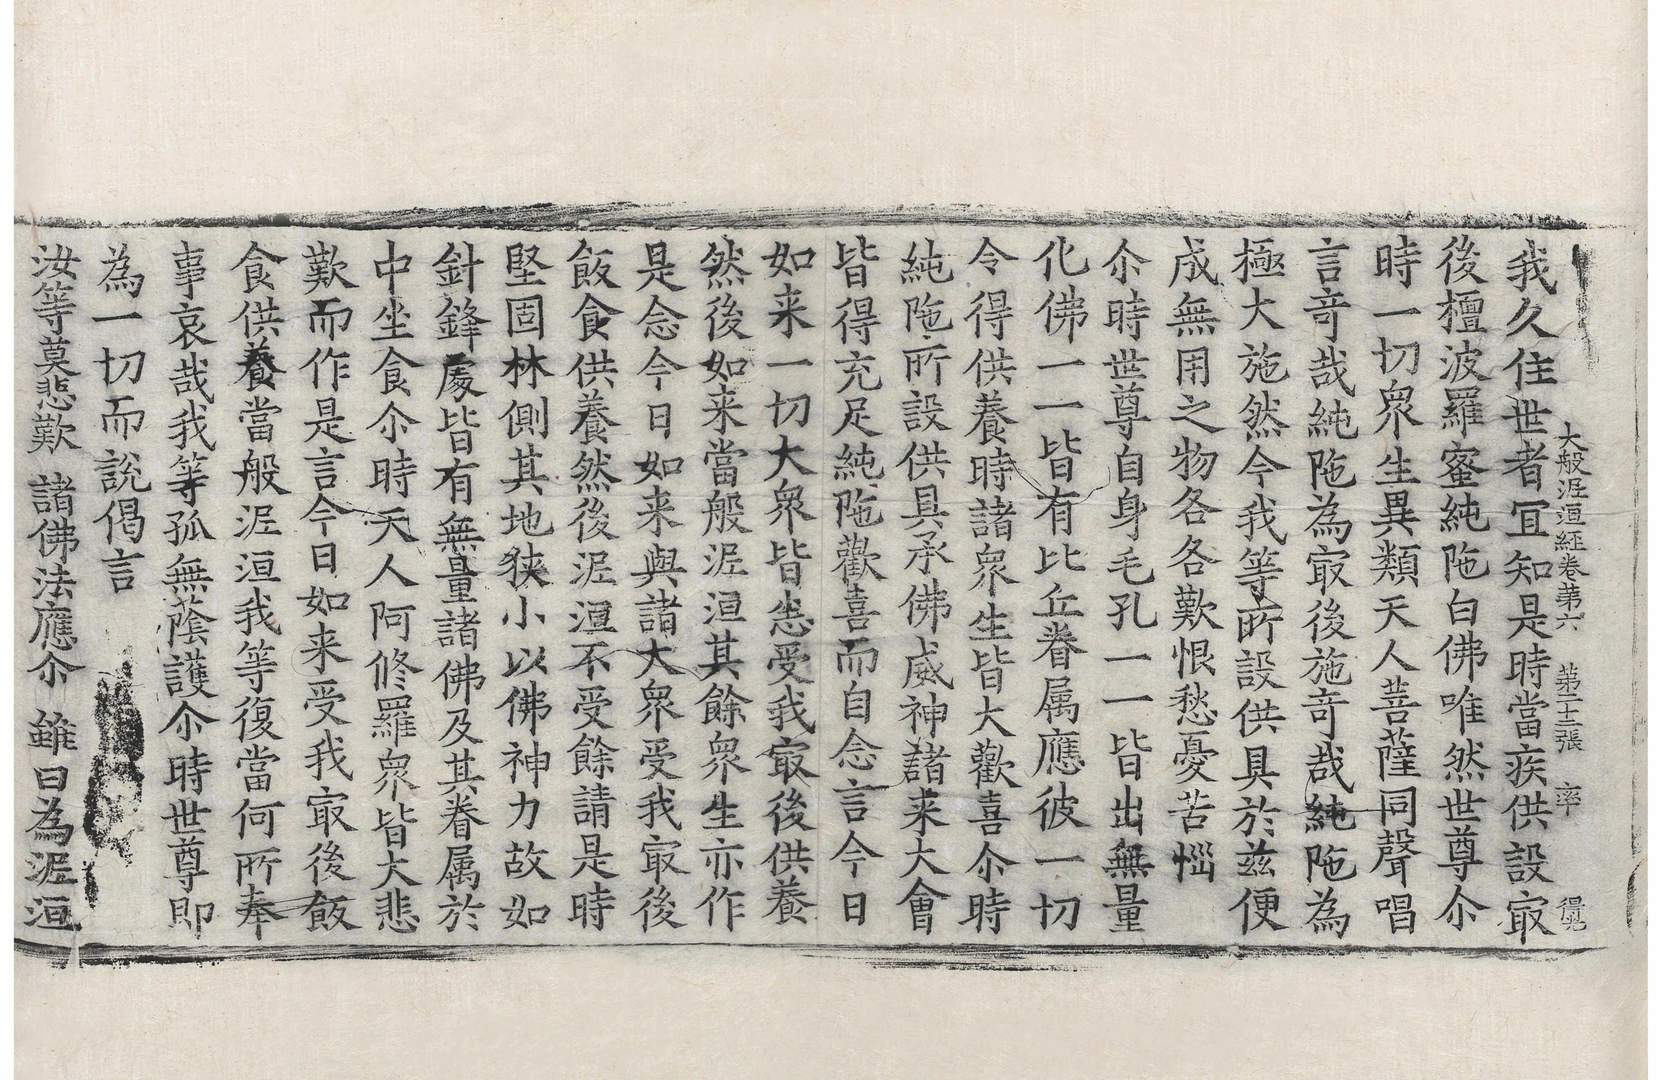 大般泥洹経卷第六　第二十二張　率
我久住世者冝知是時當疾供設冣
後檀波羅蜜純陁白佛唯然世尊尒
時一切衆生異類天人菩薩同聲唱
言竒哉純陁為冣後施竒哉純陁為
極大施然今我等所設供具於茲便
成無用之物各各歎恨愁憂苦惱
尒時世尊自身毛孔一一皆出無量
化佛一一皆有比丘眷属應彼一切
令得供養時諸衆生皆大歡喜尒時
純陁所設供具承佛威神諸来大會
皆得充足純陁歡喜而自念言今日
如来一切大衆皆悉受我冣後供養
然後如来當般泥洹其餘衆生亦作
是念今日如来與諸大衆受我冣後
飯食供養然後泥洹不受餘請是時
堅固林側其地狹小以佛神力故如
針鋒處皆有無量諸佛及其眷属於
中坐食尒時天人阿修羅衆皆大悲
歎而作是言今日如来受我冣後飯
食供養當般泥洹我等復當何所奉
事哀哉我等孤無蔭護尒時世尊即
為一切而說偈言
汝等莫悲歎　諸佛法應尒　雖曰為泥洹